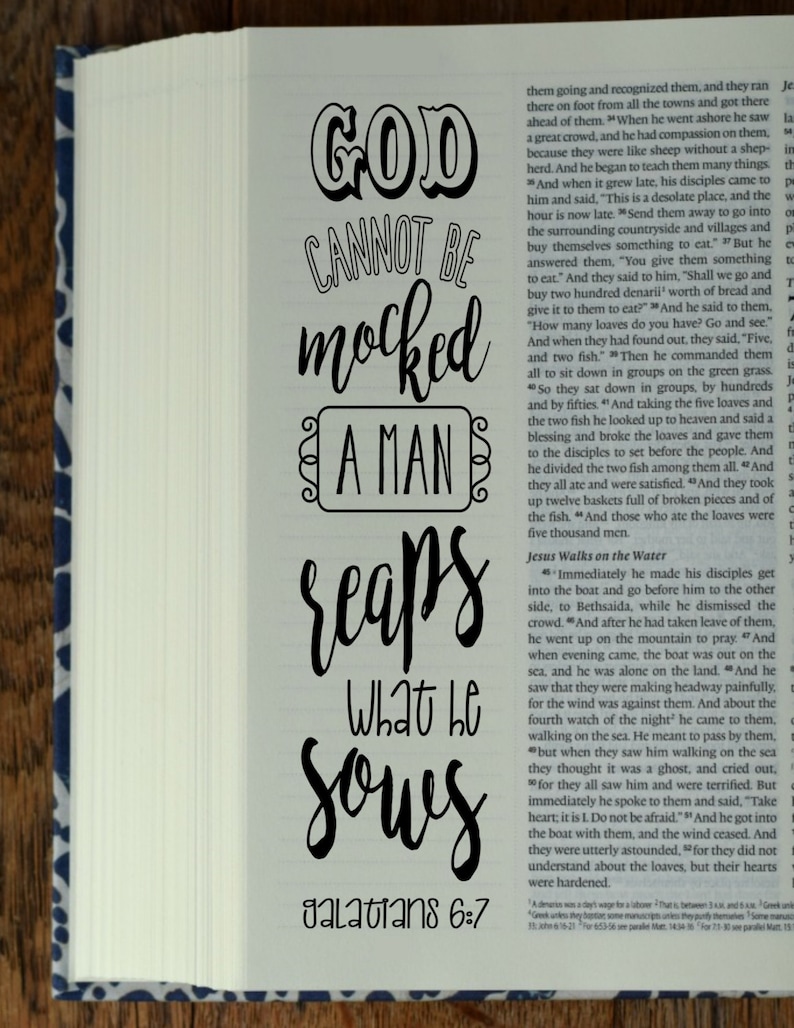 GOD
CANNOT BE
mocked
A MAN
reaps
what he
sows
galatians 6:7
them going and recognized them, and they ran
there on foot from all the towns and got there
ahead of them. 34 When he went ashore he saw
a great crowd, and he had compassion on them,
because they were like sheep without a shep-
herd. And he began to teach them many things.
35 And when it grew late, his disciples came to
him and said, "This is a desolate place, and the
hour is now late. 36 Send them away to go into
the surrounding countryside and villages and
buy themselves something to eat." 37 But he
answered them, "You give them something
to eat." And they said to him, "Shall we go and
buy two hundred denarii1 worth of bread and
give it to them to eat?" 38 And he said to them,
"How many loaves do you have? Go and see."
And when they had found out, they said, "Five,
and two fish." 39 Then he commanded them
all to sit down in groups on the green grass.
40 So they sat down in groups, by hundreds
and by fifties. 41 And taking the five loaves and
the two fish he looked up to heaven and said a
blessing and broke the loaves and gave them
to the disciples to set before the people. And
he divided the two fish among them all. 42 And
they all ate and were satisfied. 43 And they took
up twelve baskets full of broken pieces and of
the fish. 44 And those who ate the loaves were
five thousand men.
Jesus Walks on the Water
45 Immediately he made his disciples get
into the boat and go before him to the other
side, to Bethsaida, while he dismissed the
crowd. 46 And after he had taken leave of them,
he went up on the mountain to pray. 47 And
when evening came, the boat was out on the
sea, and he was alone on the land. 48 And he
saw that they were making headway painfully,
for the wind was against them. And about the
fourth watch of the night2 he came to them,
walking on the sea. He meant to pass by them,
49 but when they saw him walking on the sea
they thought it was a ghost, and cried out,
50 for they all saw him and were terrified. But
immediately he spoke to them and said, "Take
heart; it is I. Do not be afraid." 51 And he got into
the boat with them, and the wind ceased. And
they were utterly astounded, 52 for they did not
understand about the loaves, but their hearts
were hardened.
1 A denarius was a day's wage for a laborer 2 That is, between 3 A.M. and 6 A.M. 3 Greek
4 Greek unless they baptize; some manuscripts unless they purify themselves 5 Some
33; John 6:16-21 For 6:53-56 see parallel Matt. 14:34-36 For 7:1-30 see parallel Matt.